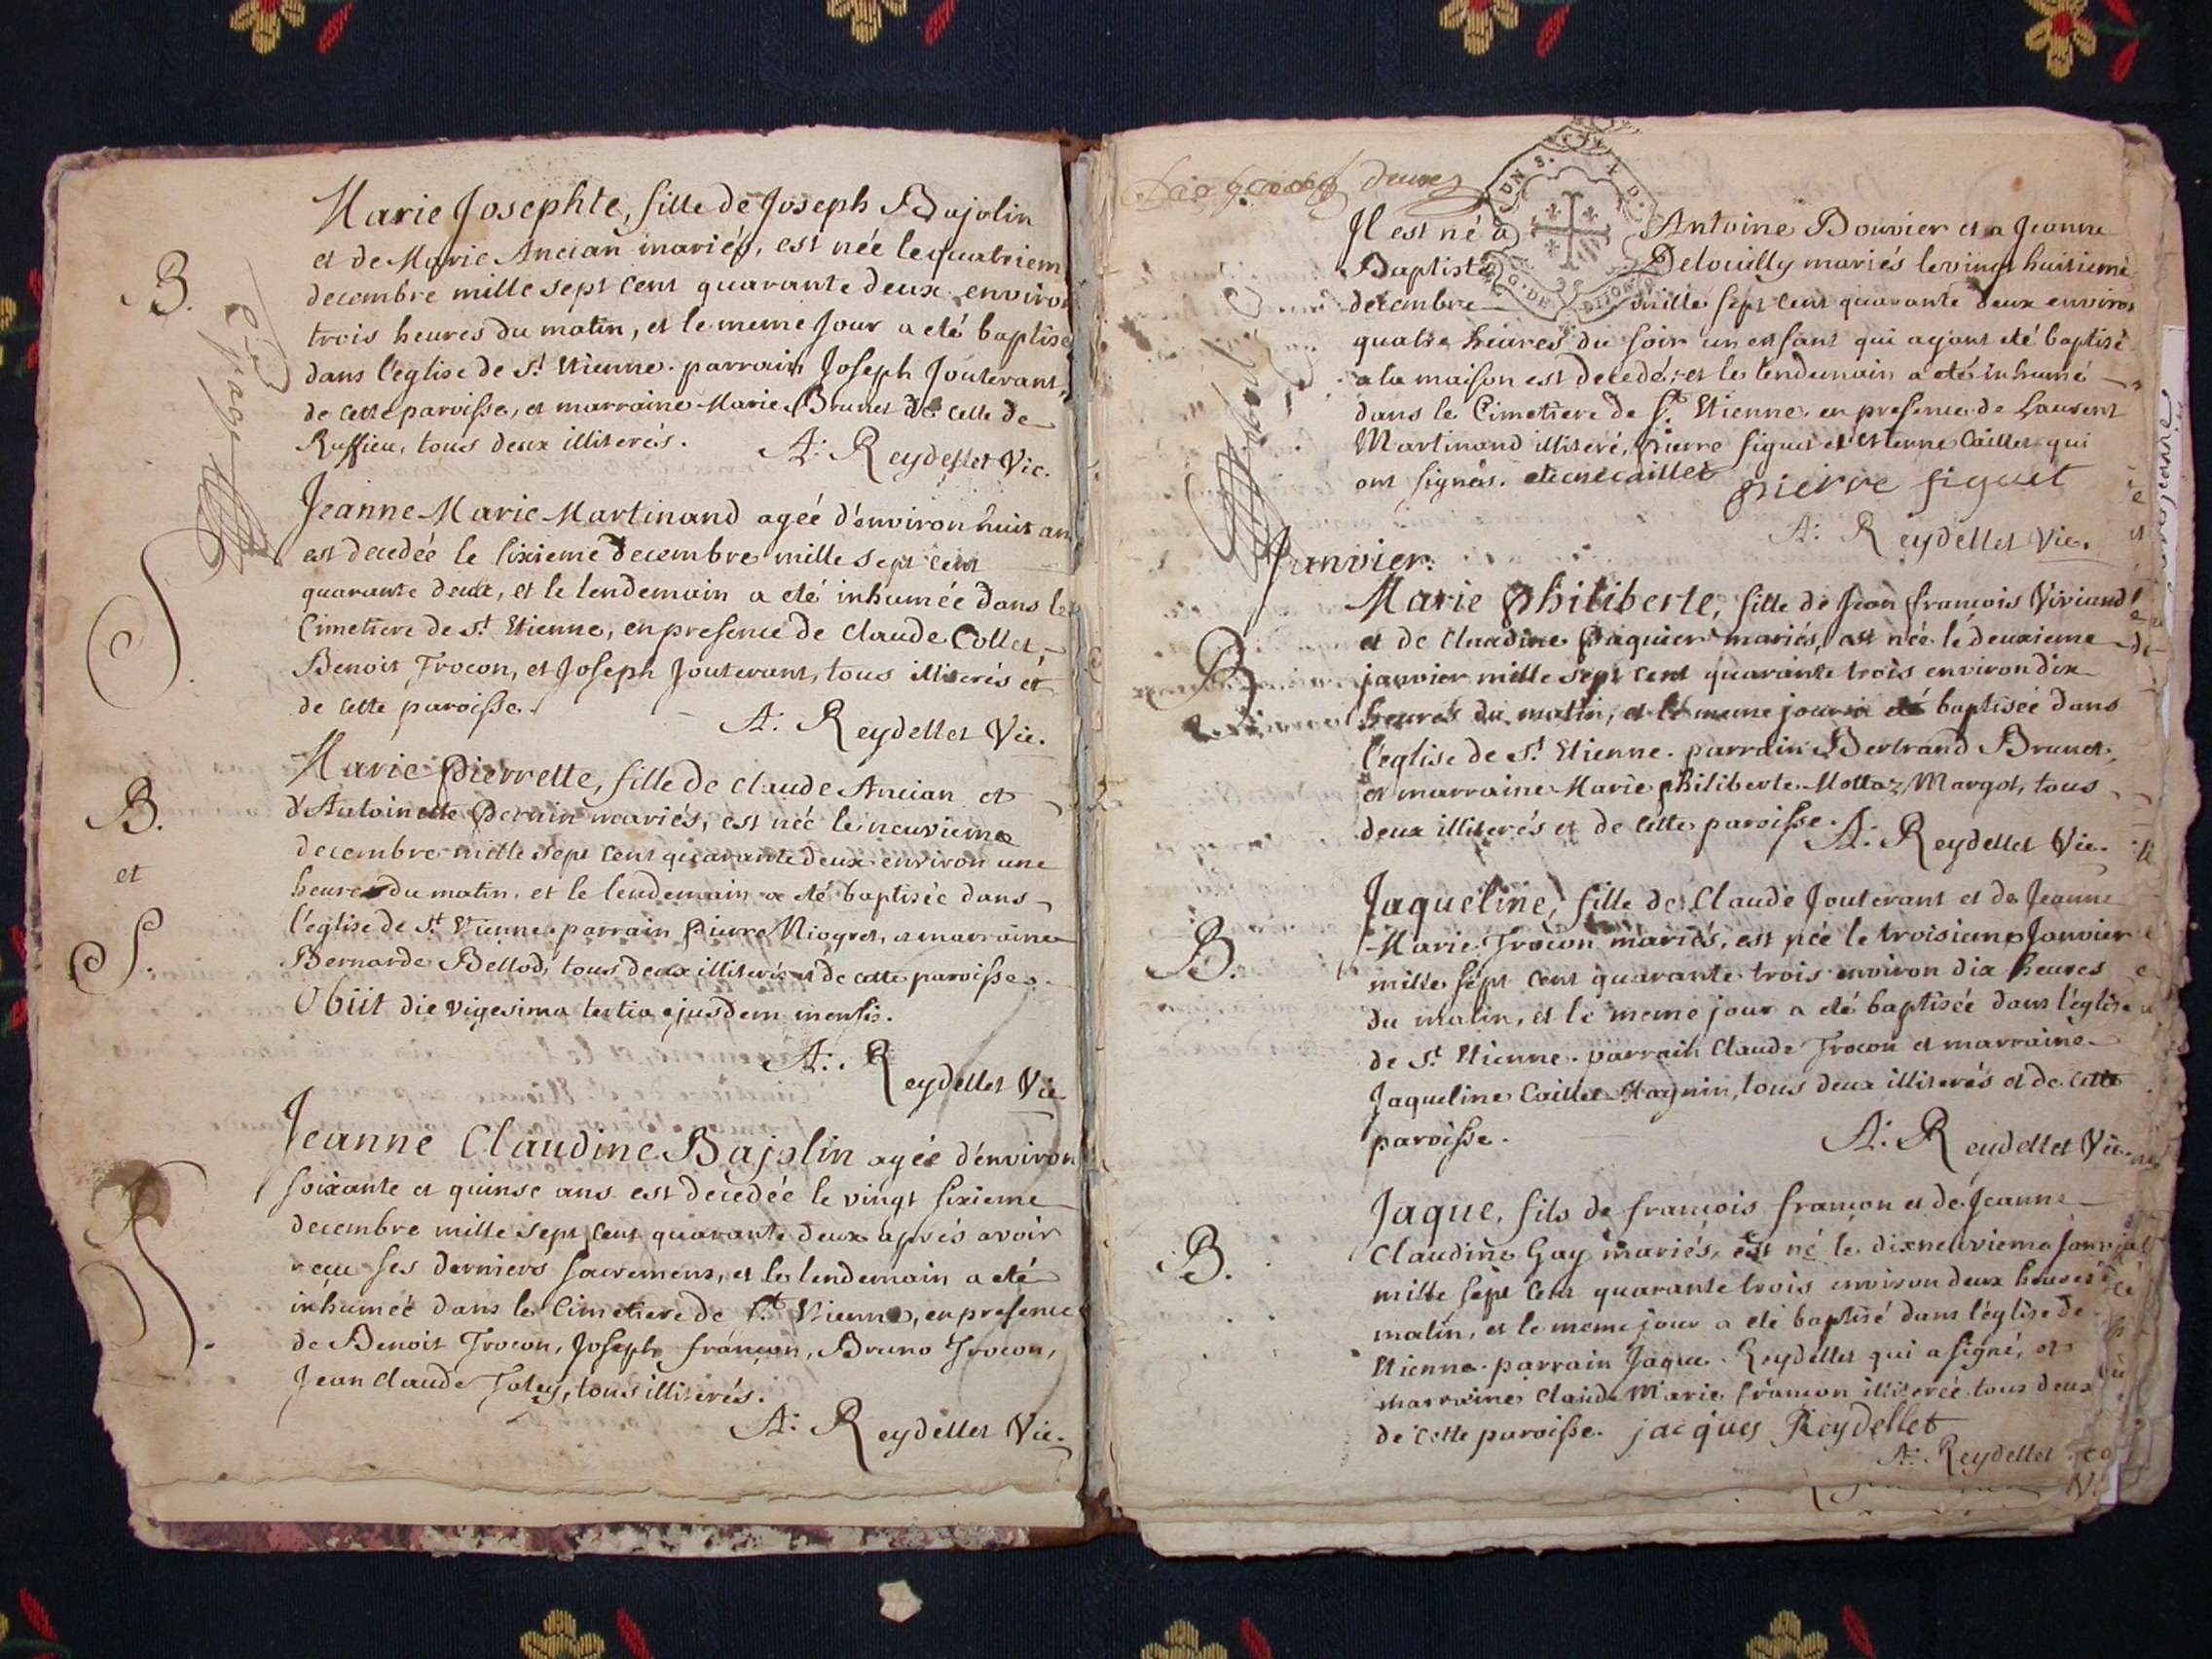 B.
Marie Josephte, fille de Joseph Bajolin
et de Marie Ancian mariés, est née le quatriem
decembre mille sept cent quarante deux environ
trois heures du matin, et le meme jour a eté baptise
dans l'eglise de St Etienne. parrain Joseph Jouterant,
de cette paroisse, et marraine Marie Brunet de celle de
Ruffieu, tous deux illiterés.
A: Reydellet Vic.
S.
Jeanne Marie Martinand ageé d'environ huit an
est decedéé le sixieme decembre mille sept cent
quarante deux, et le lendemain a eté inhuméé dans le
Cimetiere de St Etienne, en presence de Claude Collet,
Benoit Trocon, et Joseph Jouterant, tous illiterés et
de cette paroisse.
A: Reydellet Vic.
B.
et
S.
Marie Pierrette, fille de Claude Ancian et
d'Antoinette Pernin mariés, est néé le neuvieme
decembre mille sept cent quarante deux environ une
heure du matin, et le lendemain a eté baptisée dans
l'églize de St Etienne. parrain Pierre Niogret, et marraine
Bernarde Bellod, tous deux illiterés et de cette paroisse.
Obiit die vigesima tertia ejusdem mensis.
A: Reydellet Vic
S.
Jeanne Claudine Bajolin ageé d'environ
soixante et quinse ans est decedéé le vingt sixieme
decembre mille sept cent quarante deux aprés avoir
recu ses derniers sacremens, et le lendemain a eté
inhuméé dans le Cimetiere de St Etienne, en presence
de Benoit Trocon, Joseph françon, Bruno Trocon,
Jean Claude Taley, tous illiterés.
A: Reydellet Vic.
Il est né a Antoine Bouvier et a Jeanne
Baptiste Delouilly mariés le vingt huitieme
decembre mille sept cent quarante deux environ
quatre heures du soir un enfant qui ayant eté baptisé
a la maison est decedé, et le lendemain a eté inhumé
dans le Cimetiere de St Etienne en presence de Laurent
Martinand illiteré, Pierre figuet et Etienne Caillet qui
ont signés. etiene caillet pierre figuet
A: Reydellet Vic.
Janvier.
B
Marie Philiberte, fille de Jean françois Viviand
et de Claudine Paquier mariés, est néé le deuxieme
janvier mille sept cent quarante trois environ dix
heures du matin, et le meme jour a eté baptiséé dans
l'eglise de St Etienne. parrain Bertrand Brunet,
et marraine Marie philiberte Mottaz Margot, tous
deux illiterés et de cette paroisse.
A: Reydellet Vic.
B.
Jaqueline, fille de Claude Jouterant et de Jeanne
Marie Trocon mariés, est née le troisieme Janvier
mille sept cent quarante trois environ dix heures
du matin, et le meme jour a eté baptisée dans l'église
de St Etienne. parrain Claude Trocon et marraine
Jaqueline Caillet Magnin, tous deux illiterés et de cette
paroisse.
A: Reydellet Vic.
B.
Jaque, fils de françois françon et de Jeanne
Claudine Gay mariés, est né le dixneuvieme Janv
mille sept cent quarante trois environ deux heures
matin, et le meme jour a eté baptisé dans l'église de
Etienne. parrain Jaque Reydellet qui a signé, et
marraine Claude Marie françon illiterée tous deux
de cette paroisse. jacques Reydellet
A: Reydellet